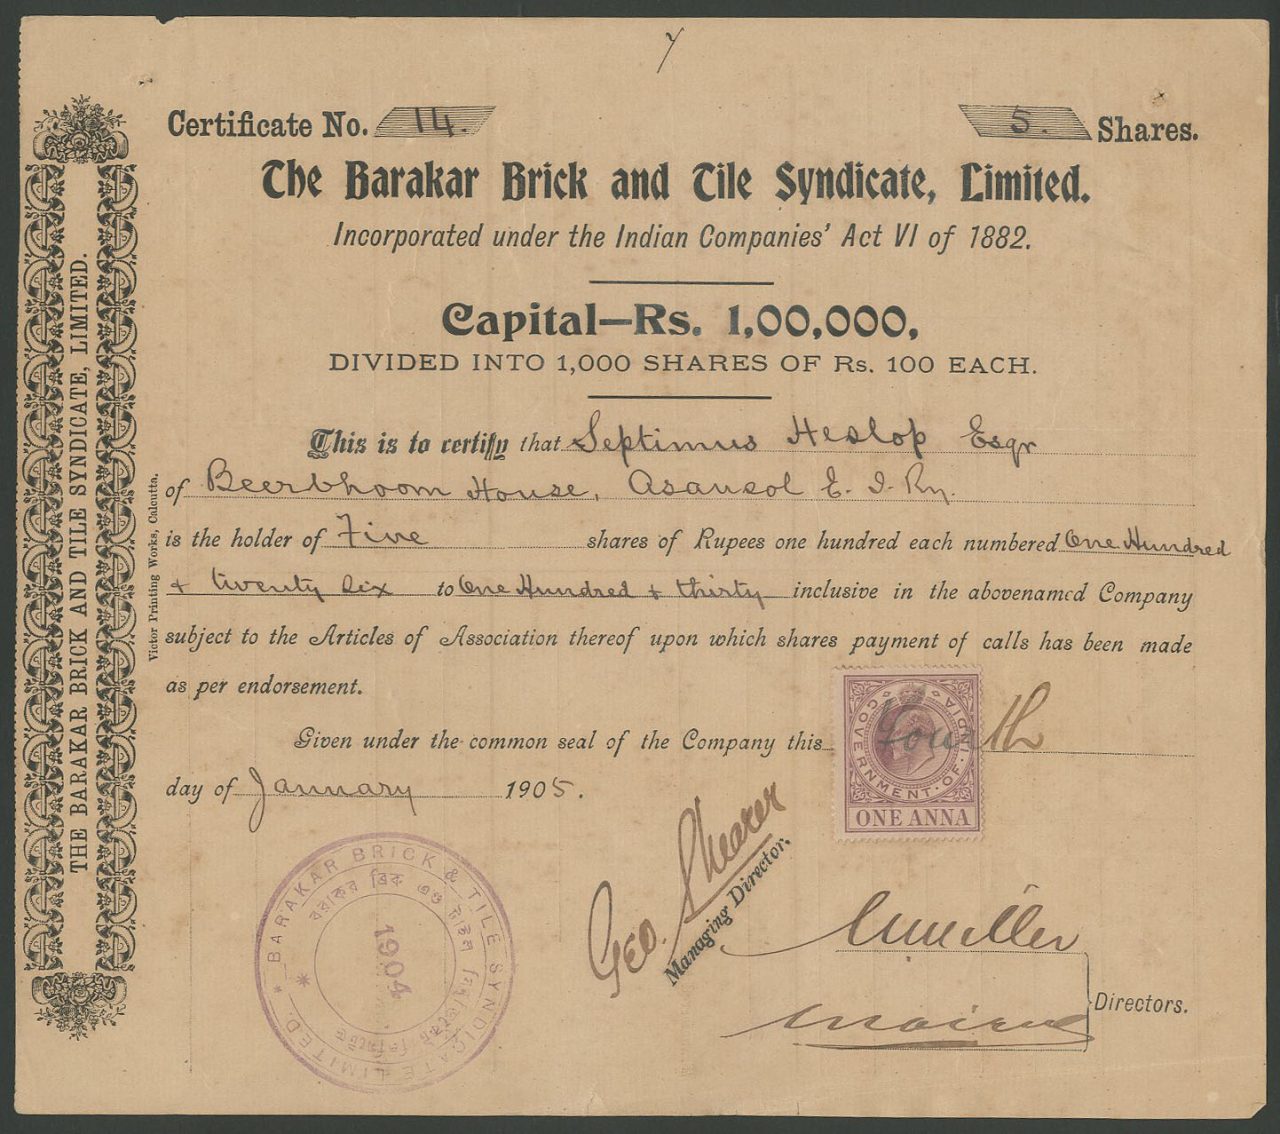 7
Certificate No. 14.
5. Shares.
The Barakar Brick and Tile Syndicate, Limited.
Incorporated under the Indian Companies' Act VI of 1882.
Capital—Rs. 1,00,000,
DIVIDED INTO 1,000 SHARES OF Rs. 100 EACH.
This is to certify that Septimus Heslop Esqr
of Beerbhoom House, Asansol E. I. Ry.
is the holder of Five shares of Rupees one hundred each numbered One Hundred
+ twenty six to One Hundred + thirty inclusive in the abovenamed Company
subject to the Articles of Association thereof upon which shares payment of calls has been made
as per endorsement.
Given under the common seal of the Company this Fourth
day of January 1905.
GOVERNMENT OF INDIA
ONE ANNA
Geo. Shearer
Managing Director.
Directors.
* BARAKAR BRICK & TILE SYNDICATE LIMITED.
বরাকর ব্রিক এণ্ড টাইল
1904
THE BARAKAR BRICK AND TILE SYNDICATE, LIMITED.
Victor Printing Works, Calcutta.